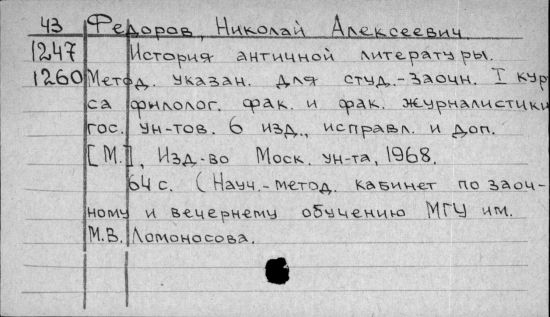 43 Федоров, Николай Алексеевич.
1247 История античной литературы.
1260 Метод. указан. для студ.-заочн. I кур
са филолог. фак. и фак. журналистики
гос. ун-тов. 6 изд., исправл. и доп.
[М.], Изд-во Моск. ун-та, 1968.
64 с. (Науч.-метод. кабинет по заоч-
ному и вечернему обучению МГУ им.
М.В. Ломоносова.